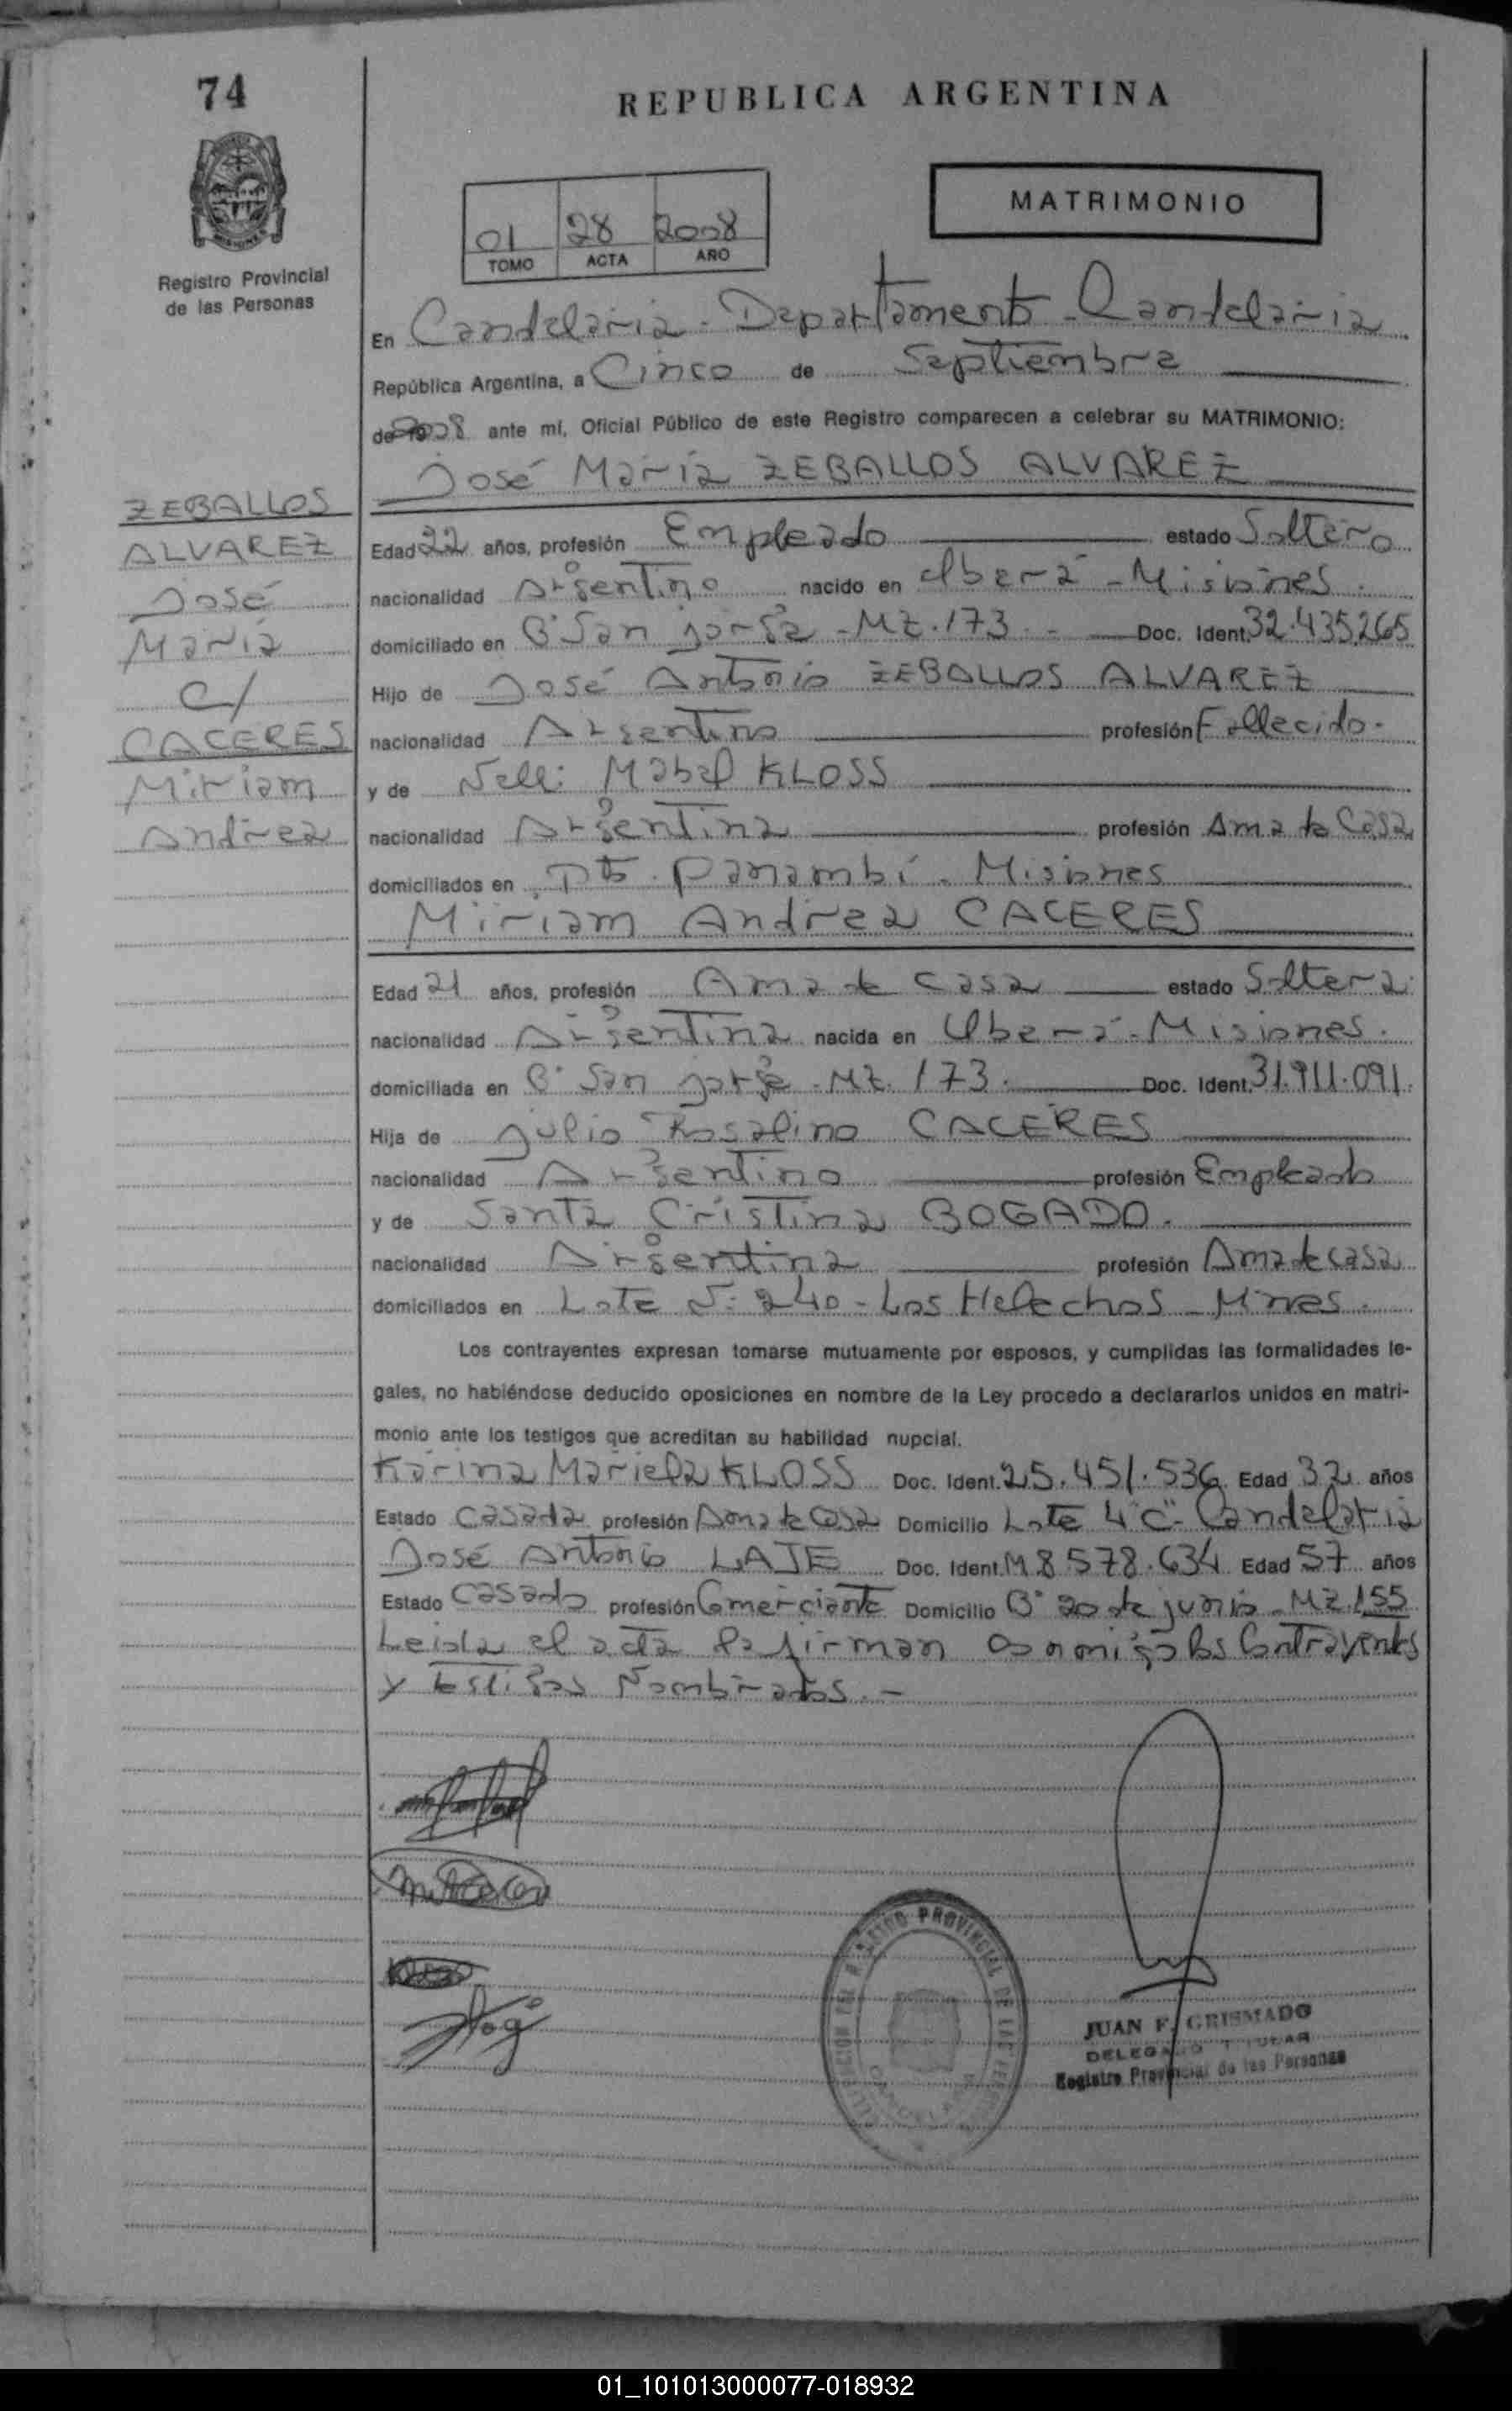 74
REPUBLICA ARGENTINA
MATRIMONIO
01 28 2008
TOMO ACTA AÑO
Registro Provincial
de las Personas
En Candelaria - Departamento Candelaria
República Argentina, a Cinco de Septiembre
de 2008 ante mí, Oficial Público de este Registro comparecen a celebrar su MATRIMONIO:
José María ZEBALLOS ALVAREZ
ZEBALLOS
ALVAREZ
José
María
C/
CACERES
Miriam
Andrea
Edad 22 años, profesión Empleado estado Soltero
nacionalidad Argentino nacido en Oberá - Misiones.
domiciliado en B° San Jorge - MZ. 173 - Doc. Ident. 32.435.265
Hijo de José Antonio ZEBALLOS ALVAREZ
nacionalidad Argentino profesión Fallecido.
y de Nelli Mabel KLOSS
nacionalidad Argentina profesión Ama de Casa
domiciliados en Pto. Panambí - Misiones
Miriam Andrea CACERES
Edad 21 años, profesión Ama de Casa estado Soltera
nacionalidad Argentina nacida en Oberá - Misiones.
domiciliada en B° San Jorge - MZ. 173. Doc. Ident. 31.911.091.
Hija de Julio Rosalino CACERES
nacionalidad Argentino profesión Empleado
y de Santa Cristina BOGADO.
nacionalidad Argentina profesión Ama de Casa
domiciliados en Lote N: 240 - Los Helechos - Mnes.
Los contrayentes expresan tomarse mutuamente por esposos, y cumplidas las formalidades le-
gales, no habiéndose deducido oposiciones en nombre de la Ley procedo a declararlos unidos en matri-
monio ante los testigos que acreditan su habilidad nupcial.
Karina Mariela KLOSS Doc. Ident. 25.451.536 Edad 32 años
Estado Casada profesión Ama de Casa Domicilio Lote 4 "C" - Candelaria
José Antonio LAJE Doc. Ident. M 8.578.634 Edad 57 años
Estado Casado profesión Comerciante Domicilio B° 20 de junio - MZ. 155
Leida el acta la firman conmigo los Contrayentes
y testigos Nombrados. -
JUAN F. GRISMADO
DELEGADO TITULAR
Registro Provincial de las Personas
01_101013000077-018932